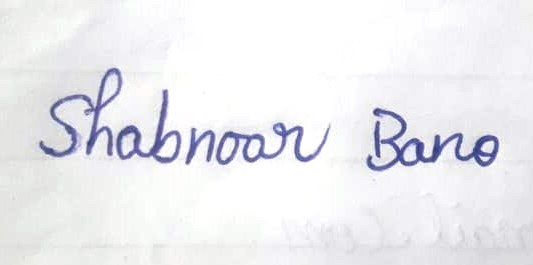 Shabnoar Bano